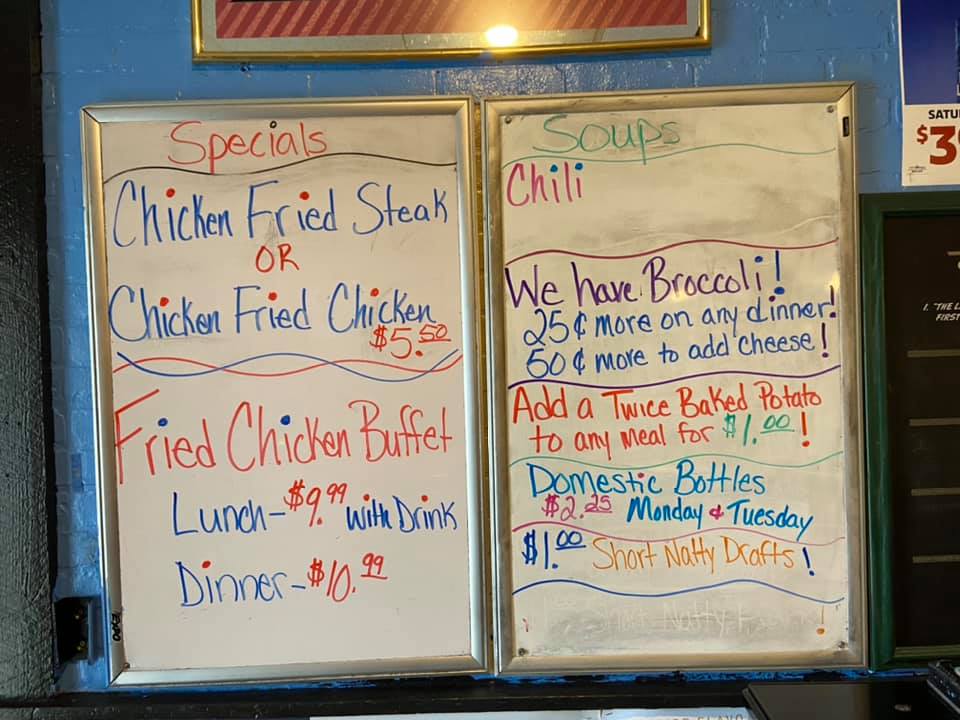 Specials
Chicken Fried Steak
OR
Chicken Fried Chicken
$5.50
Fried Chicken Buffet
Lunch-$9.99 with Drink
Dinner-$10.99
EXPO
Soups
Chili
We have Broccoli!
25¢ more on any dinner!
50¢ more to add cheese!
Add a Twice Baked Potato
to any meal for $1.00!
Domestic Bottles
$2.25 Monday & Tuesday
$1.00 Short Natty Drafts!
Short Natty
SATU
$3
1. "THE L
FIRST